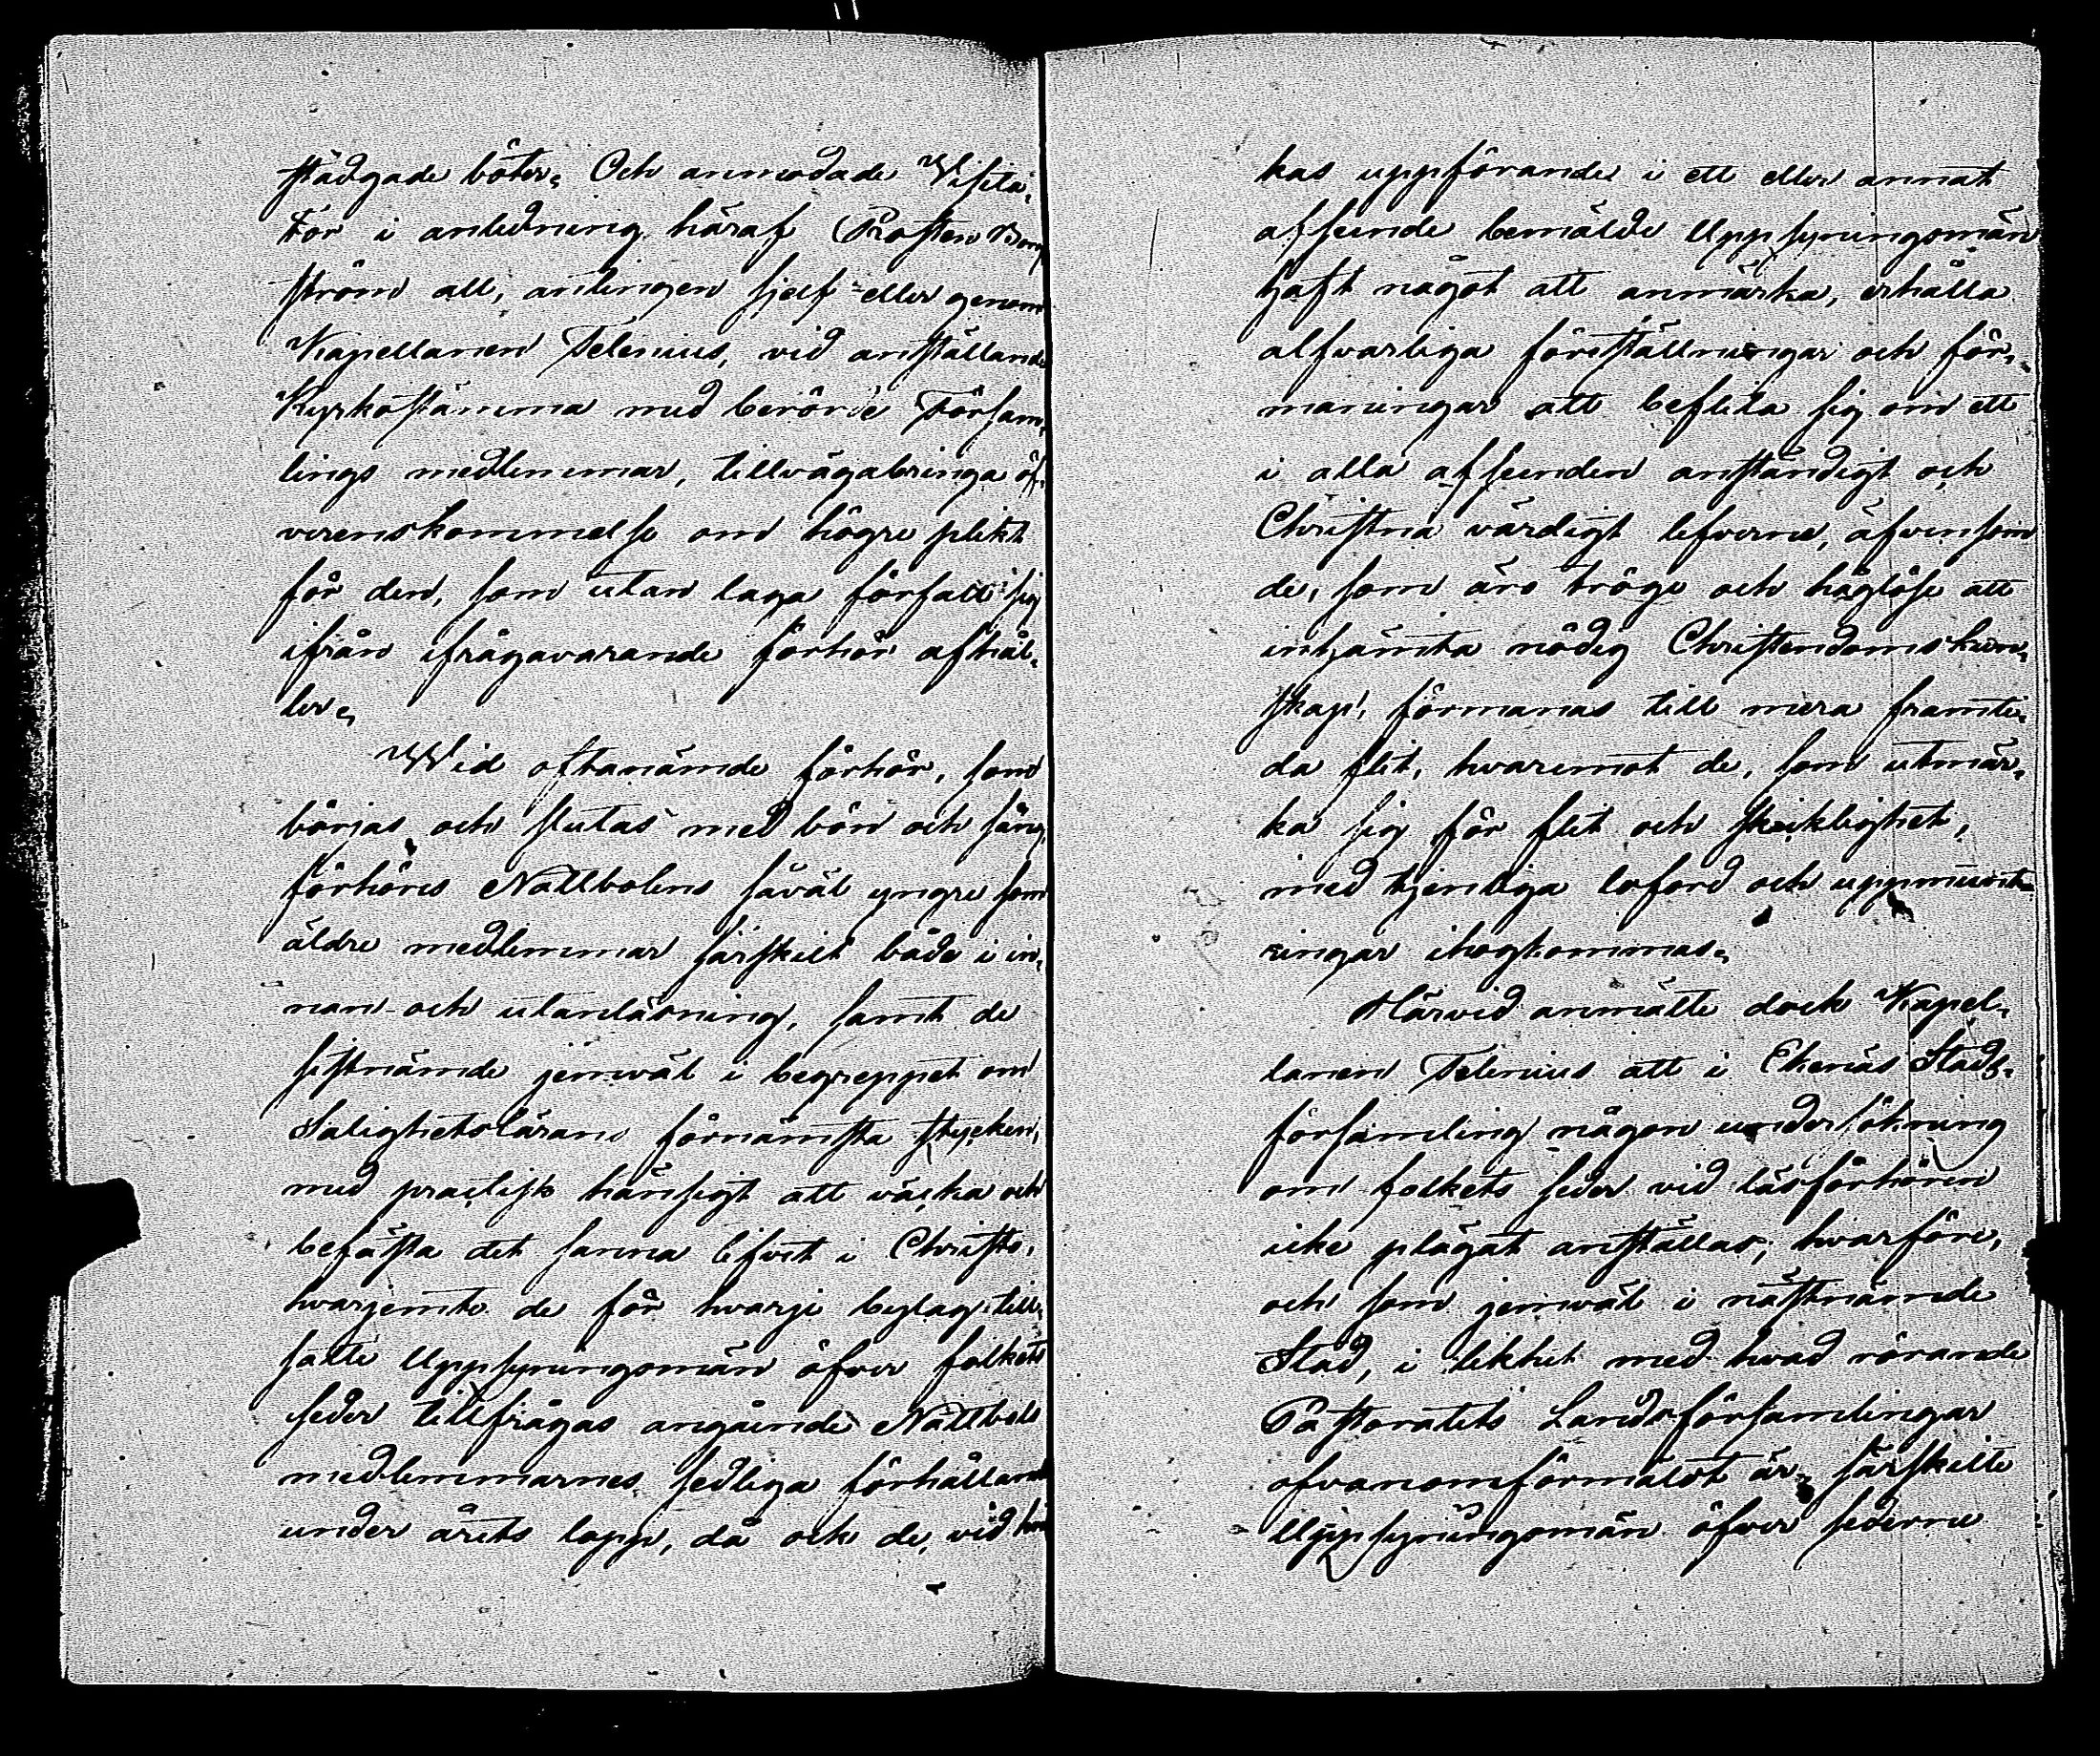 stadgade böter. Och anmodade Visita-
tor i anledning häraf Prosten Bom-
ström att, antingen sjelf eller genom
Kapellanen Telenius, vid anställande
Kyrkostämma med berörde Försam-
lings medlemmar, tillvägabringa öf-
verenskommelse om högre plikt
för den, som utan laga förfall sig
ifrån ifrågavarande förhör afhål-
ler.
Wid oftanämde förhör, som
börjas och slutas med bön och sång,
förhöres Nattbolens såväl yngre som
äldre medlemmar särskilt både i in-
nan- och utanläsning, samt de
sistnämde jemväl i begreppet om
Salighetslärans förnämsta stycken,
med practisk hänsigt att väcka och
befästa det sanna lifvet i Christo,
hvarjemte de för hvarje bylag till-
satte Uppsyningsmän öfver folkets
seder tillfrågas angående Nattbols
medlemmarnes sedliga förhållande
under årets lopp, då och de, vid hvil-
kas uppförande i ett eller annat
afseende bemälde Uppsyningsmän
haft något att anmärka, erhålla
alfvarliga föreställningar och för-
maningar att beflita sig om ett
i alla afseenden anständigt och
Christna värdigt lefverne, äfvensom
de, som äro tröge och håglöse att
inhämta nödig Christendomskun-
skap, förmanas till mera framti-
da flit, hvaremot de, som utmär-
ka sig för flit och skicklighet,
med tjenliga loford och uppmunt-
ringar ihogkommas.
Härvid anmälte dock Kapel-
lanen Telenius att i Ekenäs Stads-
församling någon undersökning
om folkets seder vid läsförhören
icke plägat anställas; hvarföre,
och som jemväl i nästnämde
Stad, i likhet med hvad rörande
Pastoratets Landsförsamlingar
ofvanomförmäldt är, särskilte
Uppsyningsmän öfver sederne